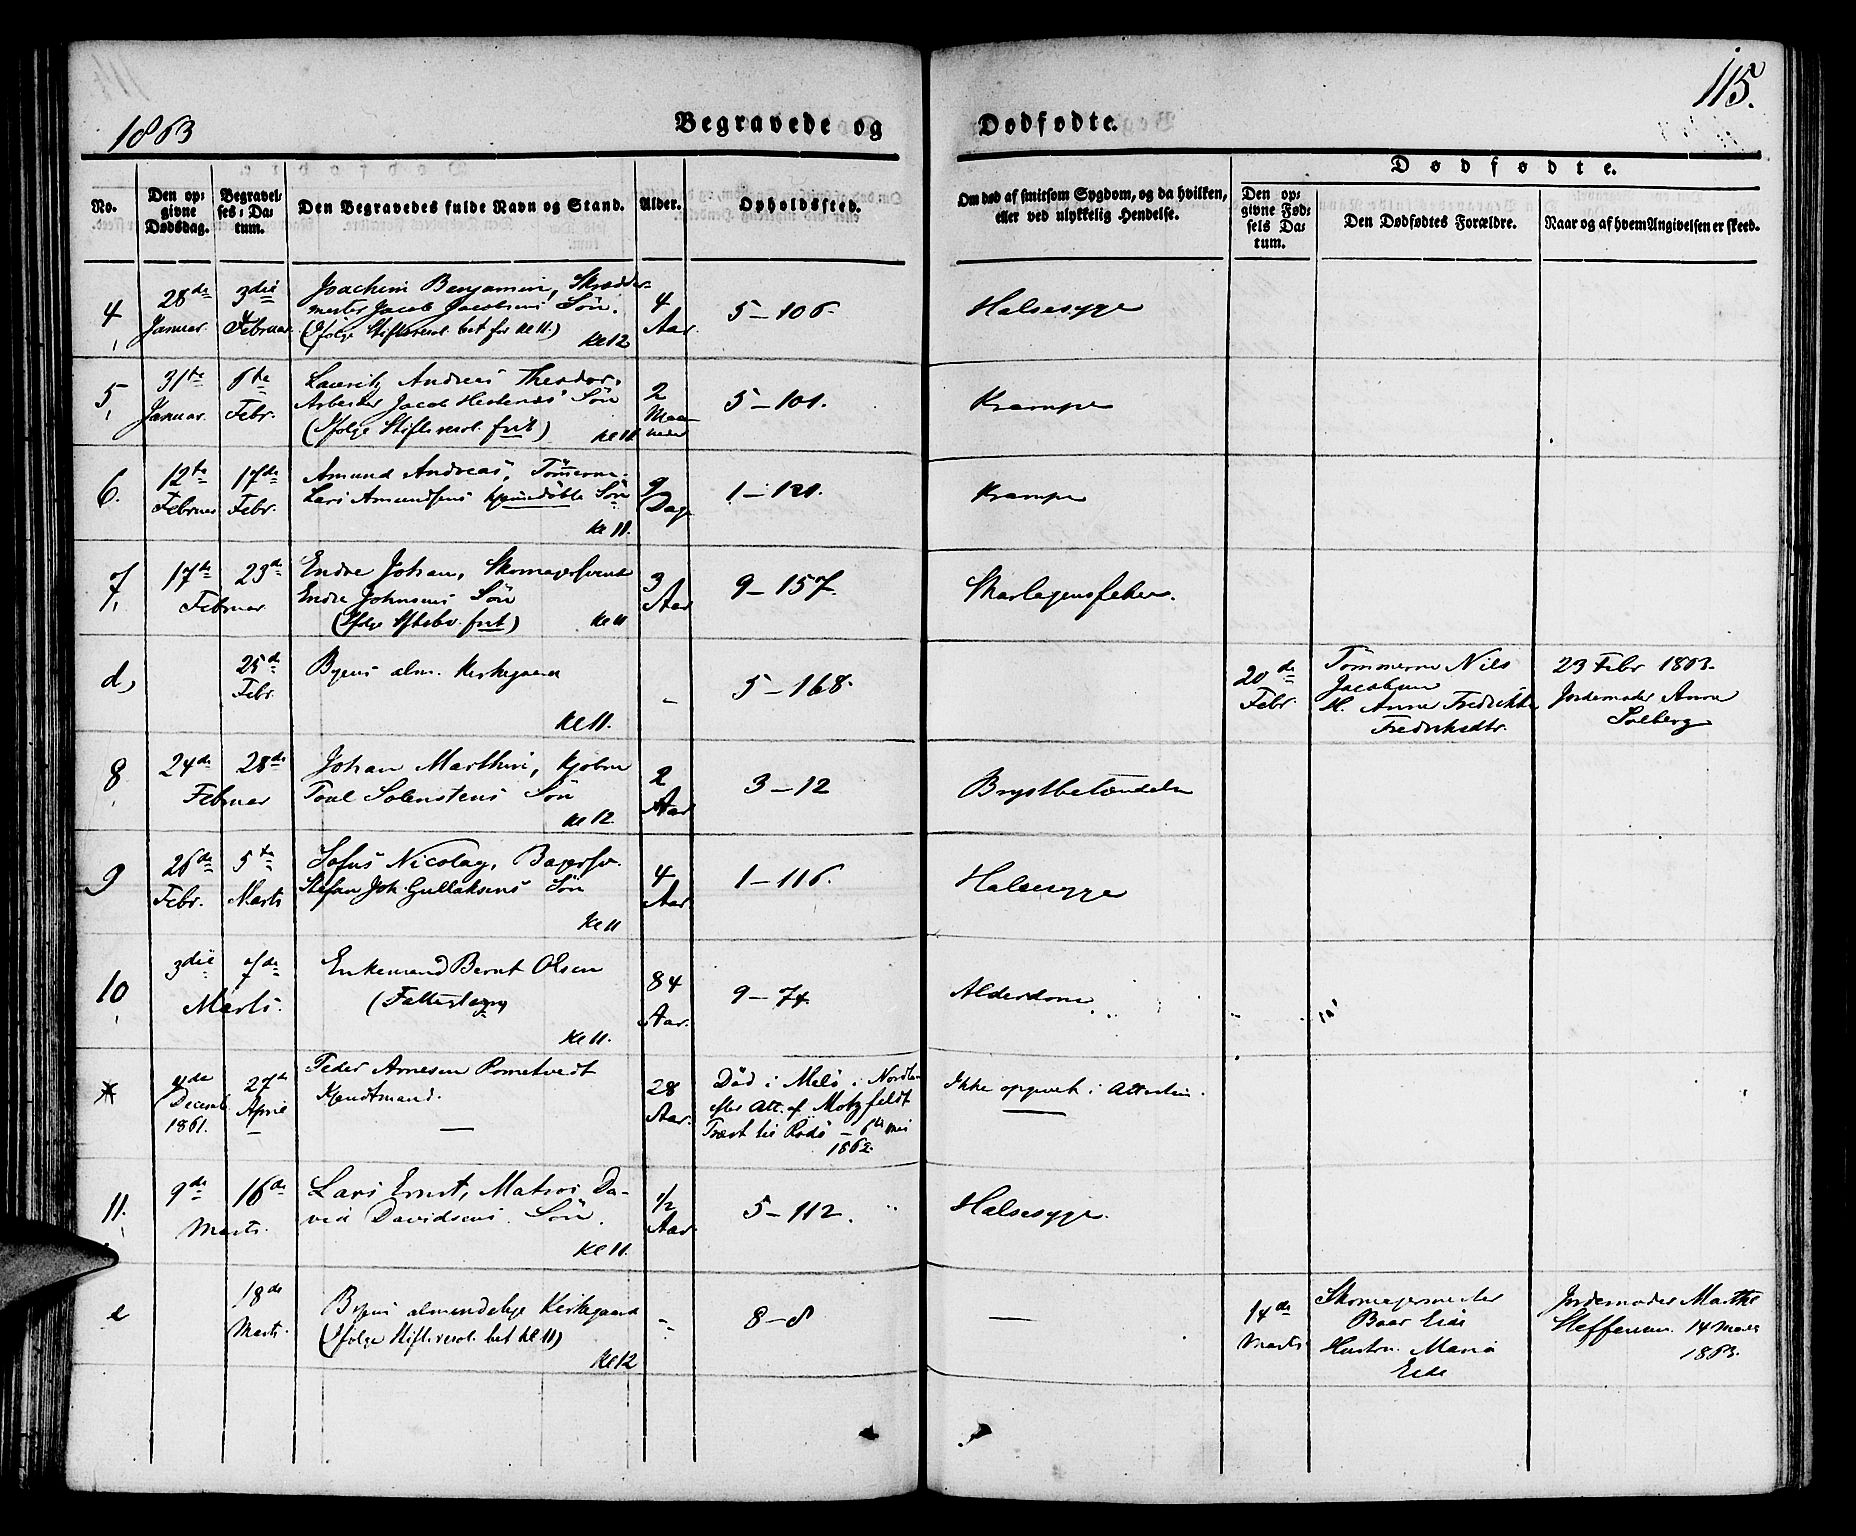 115.
1863
Begravede og Dødfødte.
Dødfødte.
No.
Den op-
givne
Dødsdag.
Begravel-
ses-Da-
tum.
Den Begravedes fulde Navn og Stand.
Alder.
Opholdssted.
Om død af smitsom Sygdom, og da hvilken,
eller ved ulykkelig Hendelse.
Den op-
givne Fød-
sels Da-
tum.
Den Dødfødtes Forældre.
Naar og af hvem Angivelsen er skeed.
4
28de
Januar.
3die
Februar
Joachim Benjamin, Skrædder-
mester Jacob Jacobsens Søn.
(Ifølge Stiftsresol. bet for Kl 11.)
Kl 12
4
Aar.
5-106.
Halsesyge
5
31te
Januar.
6te
Febr.
Lauritz Andreas Theodor,
Arbeider Jacob Søn
(Ifølge Stiftsresol. frit)
Kl 11
2
Maa-
neder
5-101.
Krampe
6.
12te
Februar
17de
Febr.
Amund Andreas, Tømmerm.
Lars Amundsens Søn
Kl 11.
9
Dage
1-121.
Krampe
7
17de
23de
Februar
Endre Johan, Skomagersvend
Endre Johnsens Søn
(Ifølge frit)
Kl 11
3
Aar
9-157.
Skarlagensfeber.
d,
25de
Febr.
Byens alm. Kirkegaard
Kl 11.
-
5-168.
20de
Febr.
Tømmerm Nils
Jacobsen
H. Anne Fredrikke
Fredriksdtr.
23 Febr 1863.
Jordemoder Anna
Solberg
8
24de
28de
Februar
Johan Marthin, Kjøbm
Poul Solenstens Søn
Kl 12.
2
Aar
3-12
Brystbetændelse
9
26de
Febr.
5te
Marts
Sofus Nicolay, Bagersv.
Stefan Joh. Gullaksens Søn
Kl 11
4
Aar.
1-116.
Halsesyge
10
3die
7de
Marts.
Enkemand Bernt Olsen
Kl 11.
84
Aar.
9-74.
Alderdom
11de
Decemb.
1861.
27de
April
Peder Arnesen Rometvedt
Kjøndtmand.
28
Aar.
Død i Melø i Nordl
efter Att. af Motzfeldt
Præst til Rødø - 6te Mai
1862.
Ikke opgivet i Attesten.
11.
9de
16de
Marts.
Lars Ernst, Matros Da-
vid Davidsens Søn.
Kl 11.
1/2
Aar
5-112.
Halsesyge.
e
18de
Marts.
Byens almindelige Kirkegaard
(Ifølge Stiftsresol. bet Kl 11)
Kl 12
-
8-8
14de
Marts
Skomagermester
Baar Eide
Hustru Maria
Eide
Jordemoder Marthe
Steffensen. 14 Marts
1863.